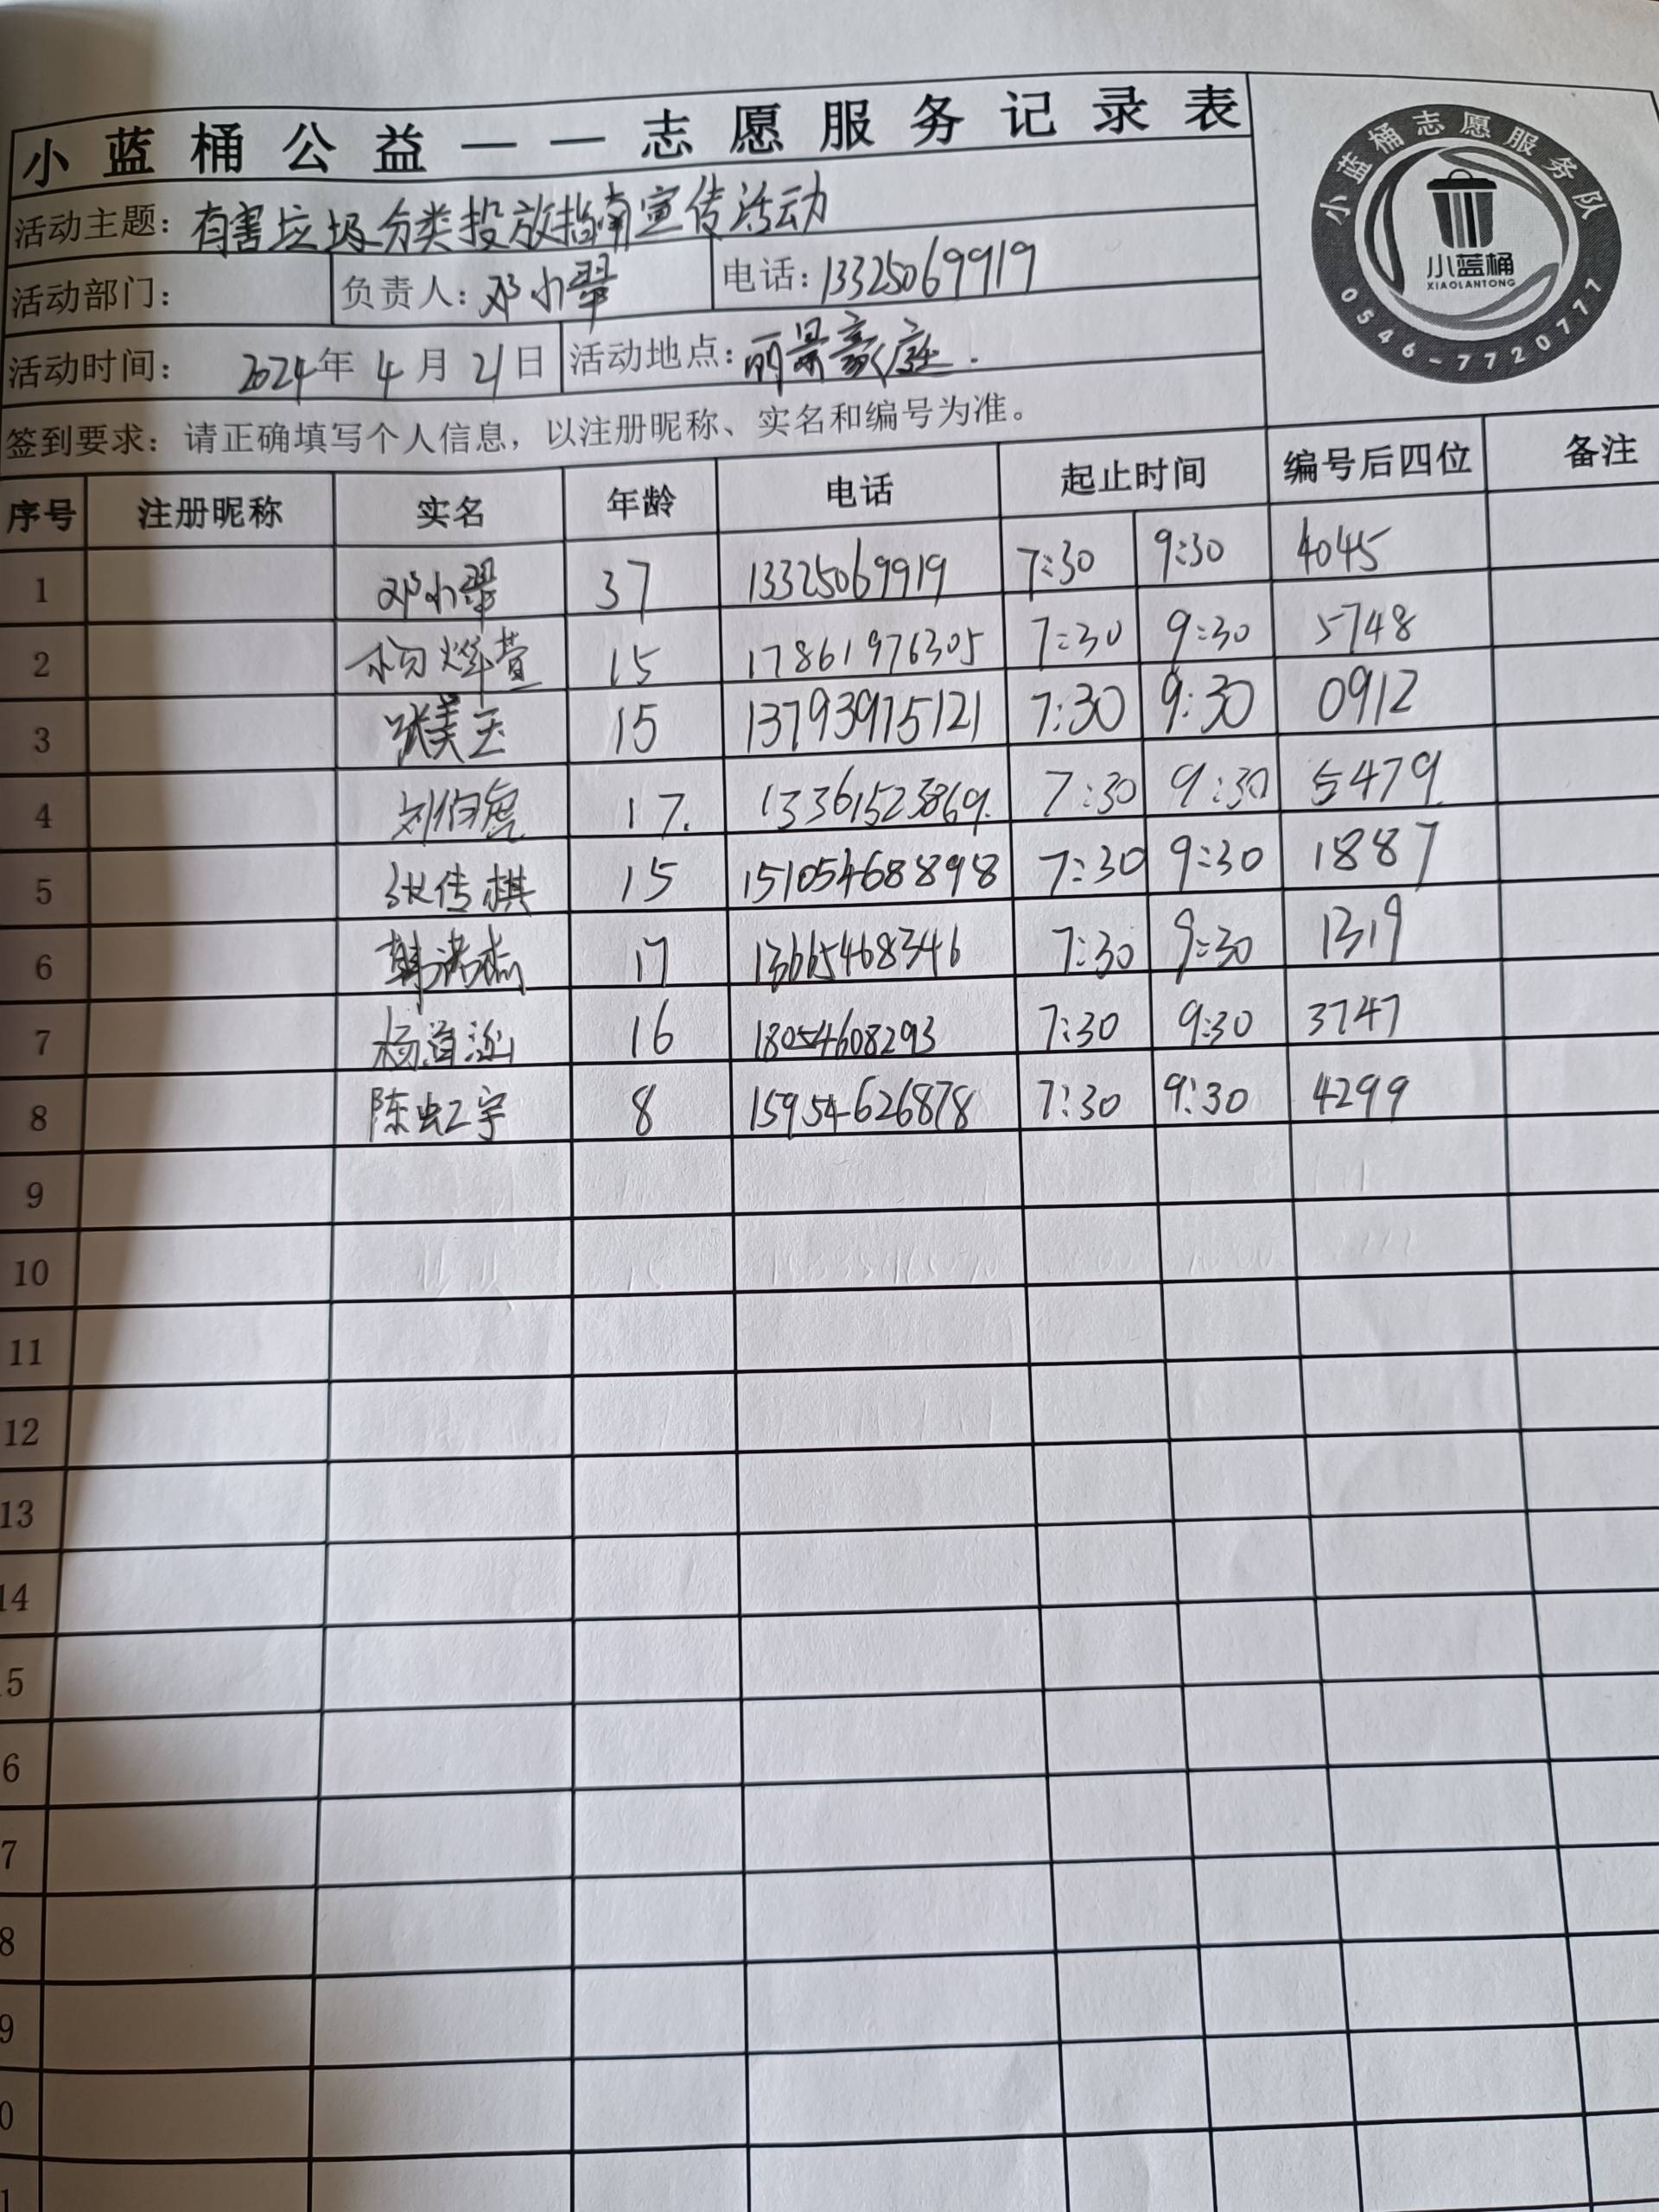 小蓝桶公益——志愿服务记录表
小蓝桶志愿服务队
小蓝桶
XIAOLANTONG
0546-7720777
活动主题：有害垃圾分类投放指南宣传活动
活动部门： 负责人：邓小翠 电话：13325069919
活动时间： 2024年4月21日 活动地点：丽景豪庭.
签到要求：请正确填写个人信息，以注册昵称、实名和编号为准。
序号 注册昵称 实名 年龄 电话 起止时间 编号后四位 备注
1 邓小翠 37 13325069919 7:30 9:30 4045
2 15 17861976305 7:30 9:30 5748
3 张美玉 15 13793975121 7:30 9:30 0912
4 17. 13361523869. 7:30 9:30 5479
5 张传棋 15 15105468898 7:30 9:30 1887
6 17 13665468346 7:30 9:30 1319
7 16 18054608293 7:30 9:30 3747
8 陈虹宇 8 15954626878 7:30 9:30 4299
9
10
11
12
13
14
5
6
7
8
9
0
1